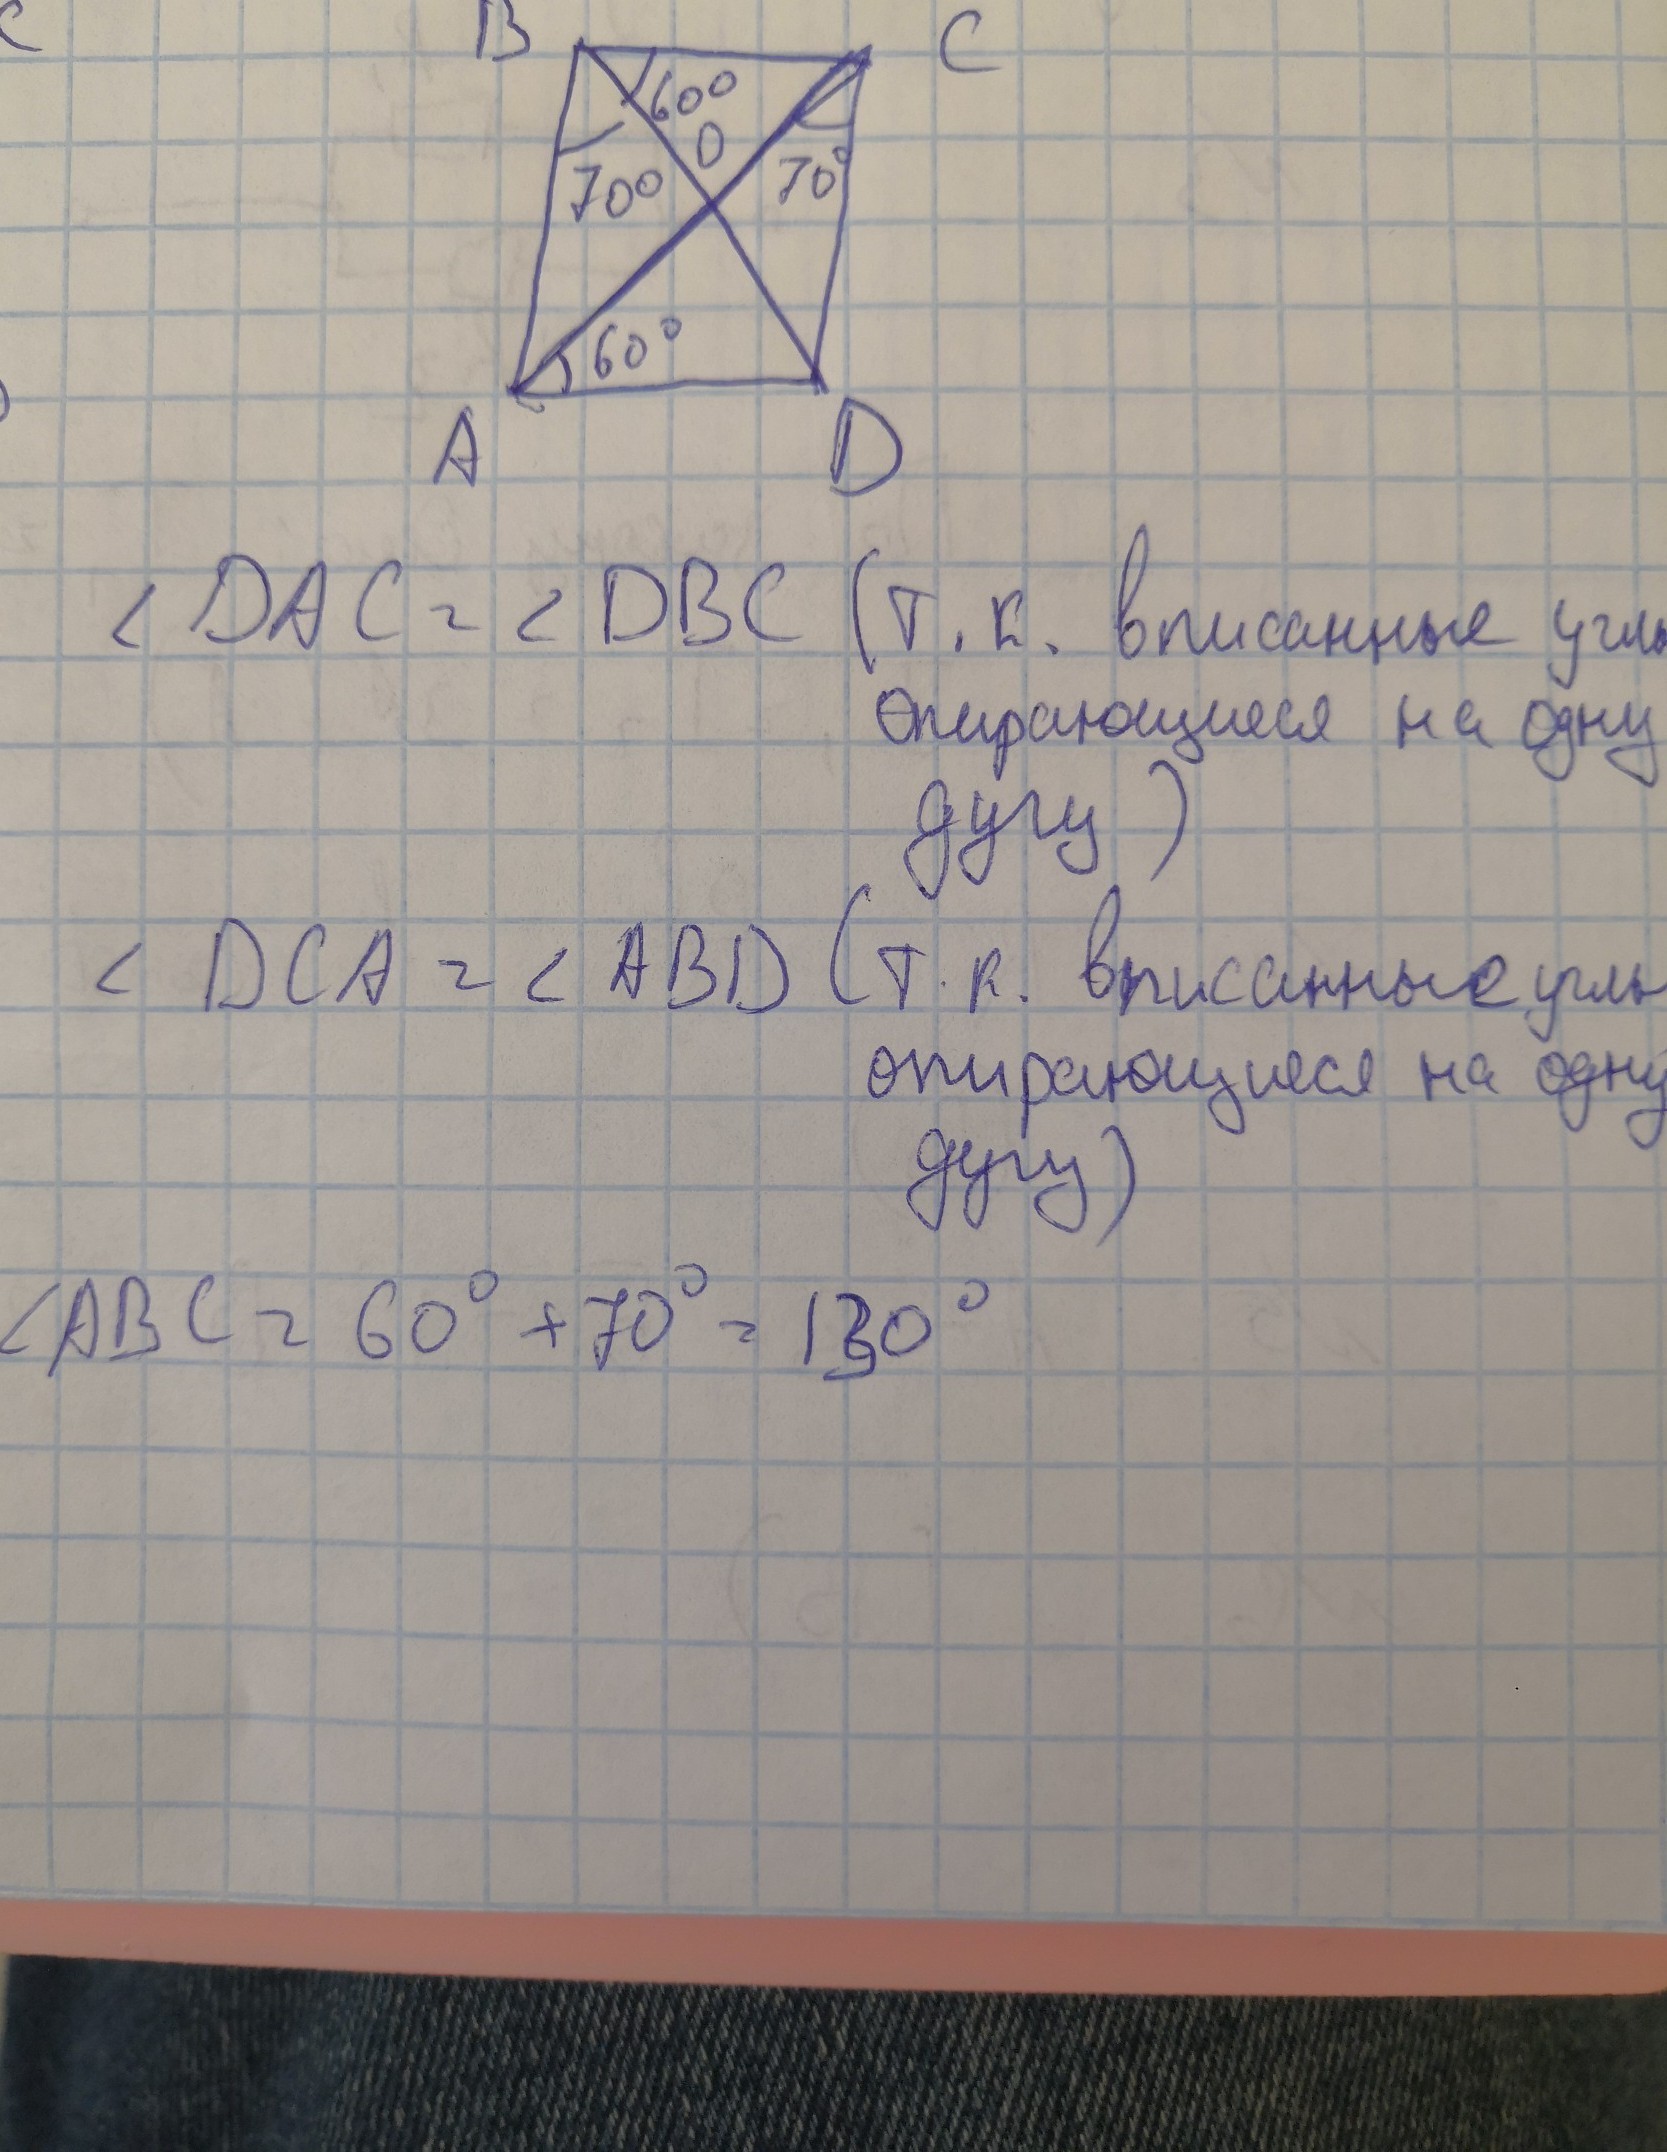 C
B
C
60°
O
70°
70°
60°
A
D
<DAC = <DBC (т.к. вписанные углы
опирающиеся на одну
дугу)
<DCA = <ABD (т.к. вписанные углы
опирающиеся на одну
дугу)
<ABC = 60° + 70° = 130°